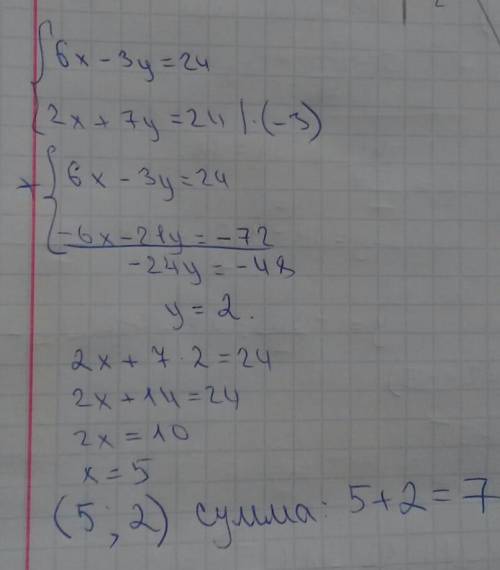 6x - 3y = 24
2x + 7y = 24 | · (-3)
+ 6x - 3y = 24
-6x - 21y = -72
-24y = -48
y = 2.
2x + 7 · 2 = 24
2x + 14 = 24
2x = 10
x = 5
(5; 2) сумма: 5 + 2 = 7